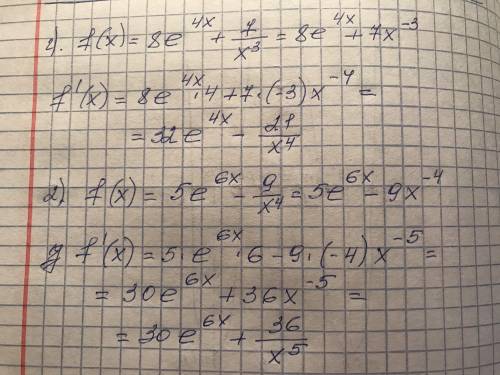 1). f(x) = 8e^{4x} + \frac{7}{x^3} = 8e^{4x} + 7x^{-3}
f'(x) = 8e^{4x} · 4 + 7 · (-3)x^{-4} =
= 32e^{4x} - \frac{21}{x^4}
2) f(x) = 5e^{6x} - \frac{9}{x^4} = 5e^{6x} - 9x^{-4}
f'(x) = 5 · e^{6x} · 6 - 9 · (-4)x^{-5} =
= 30e^{6x} + 36x^{-5} =
= 30e^{6x} + \frac{36}{x^5}